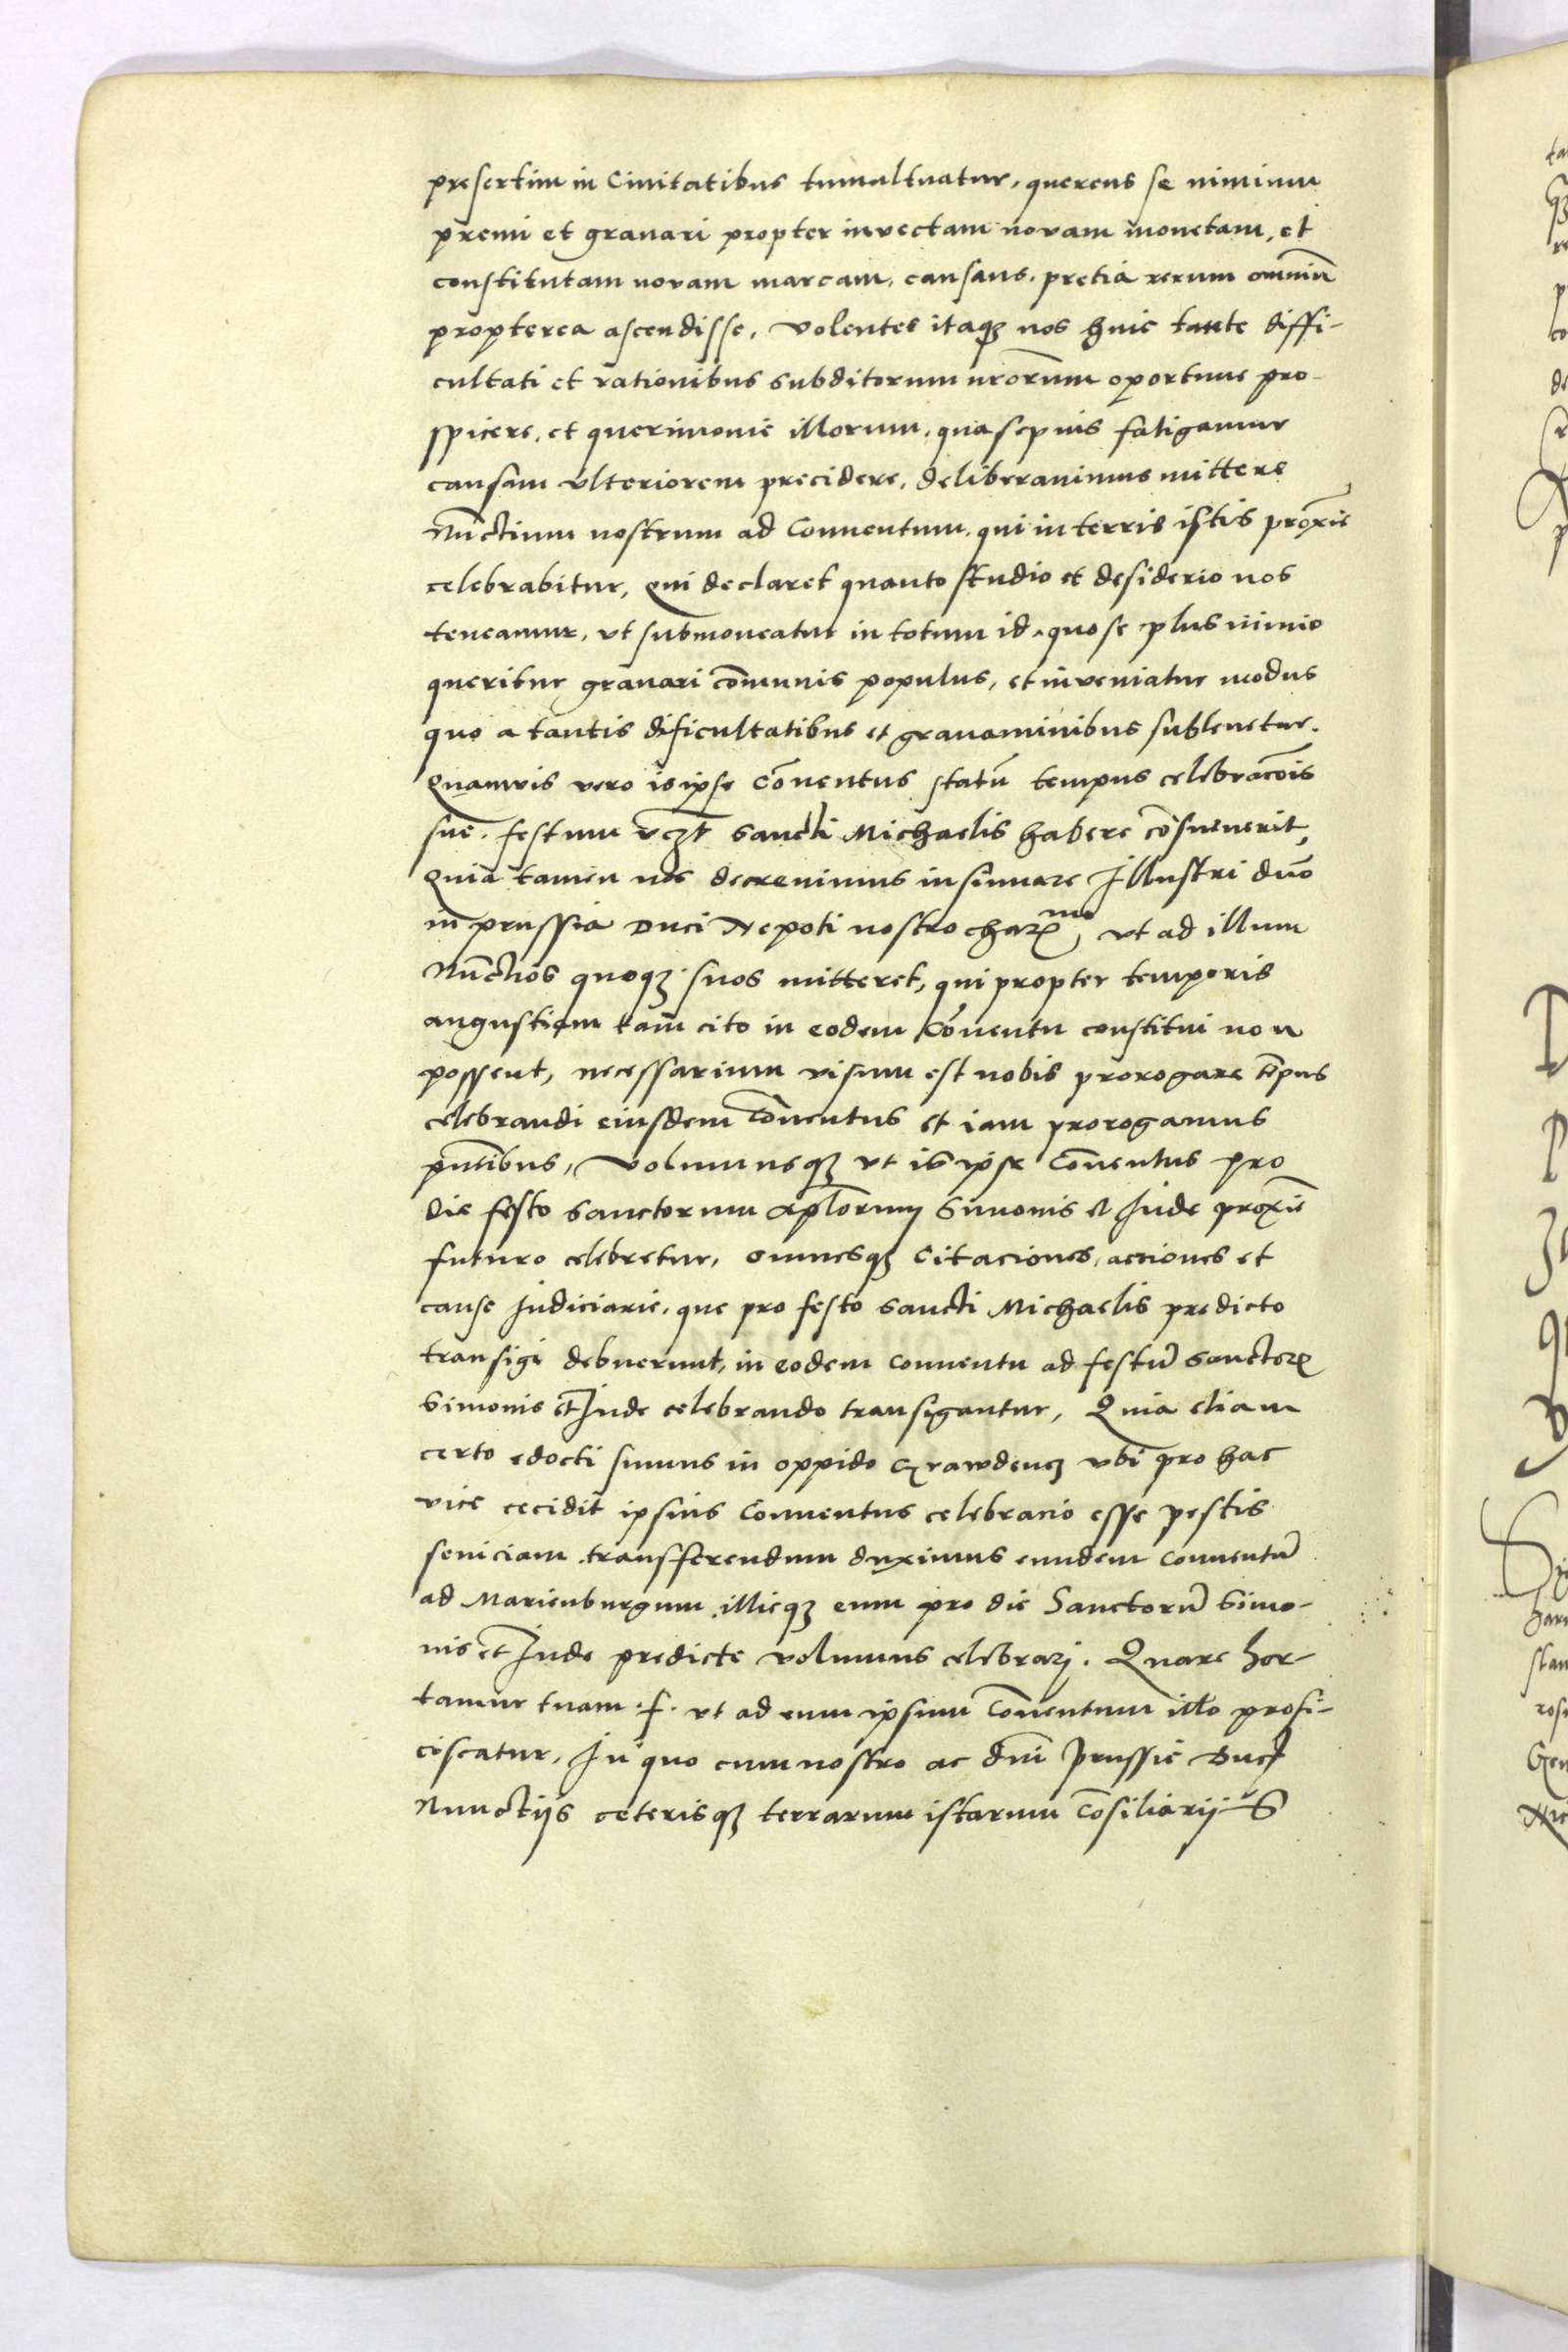 presertim in Civitatibus tumultuatur, querens se nimium
premi et gravari propter invectam novam monetam, et
constitutam novam marcam, causans, pretia rerum omniū
propterea ascendisse. Volentes itaqȝ nos huic tante diffi-
cultati et rationibus subditorum nrorum oportune pro-
spicere, et querimonie illorum, qua sepius fatigamur
causam ulteriorem precidere, deliberavimus mittere
Nunctium nostrum ad Conventum, qui in terris istis proxīe
celebrabitur, qui declaret quanto studio et desiderio nos
teneamur, ut submoveatur in totum id, quo se plus nimio
queritur gravari cōmunis populus, et inveniatur modus
quo a tantis dificultatibus et gravaminibus sublevetur.
Quamvis vero is ipse Cōventus statū tempus celebracōis
sue, festum vcȝt sancti Michaelis habere cōsueverit,
Quia tamen nos decrevimus insinuare Illustri dnō
in prussia Duci Nepoti nostro charmo, ut ad illum
Nūctios quoqȝ suos mitteret, qui propter temporis
angustiam tam cito in eodem Cōventu constitui non
possent, necessarium visum est nobis prorogare tēpus
celebrandi eiusdem Cōventus et iam prorogamus
pn̄tibus, Volumusqȝ ut is ipse Cōventus pro
die festo sanctorum aplorum Simonis et Jude proxīe
futuro celebretur, omnesqȝ Citaciones, actiones et
cause Judiciarie, que pro festo sancti Michaelis predicto
transigi debuerunt, in eodem conventu ad festū sanctorꝝ
Simonis et Jude celebrando transigantur, Quia etiam
certo edocti sumus in oppido Grawdencȝ ubi pro hac
vice cecidit ipsius Conventus celebracio esse pestis
seviciam transferendum duximus eundem conventū
ad Marienburgum, illicqȝ eum pro die Sanctorū Simo-
nis et Jude predicte volumus celebrarj. Quare hor-
tamur tuam .f. ut ad eum ipsum Cōventum illo profi-
ciscatur, In quo cum nostro ac dni Prussie Ducis
Nunctijs ceterisqȝ terrarum istarum Cōsiliarijs